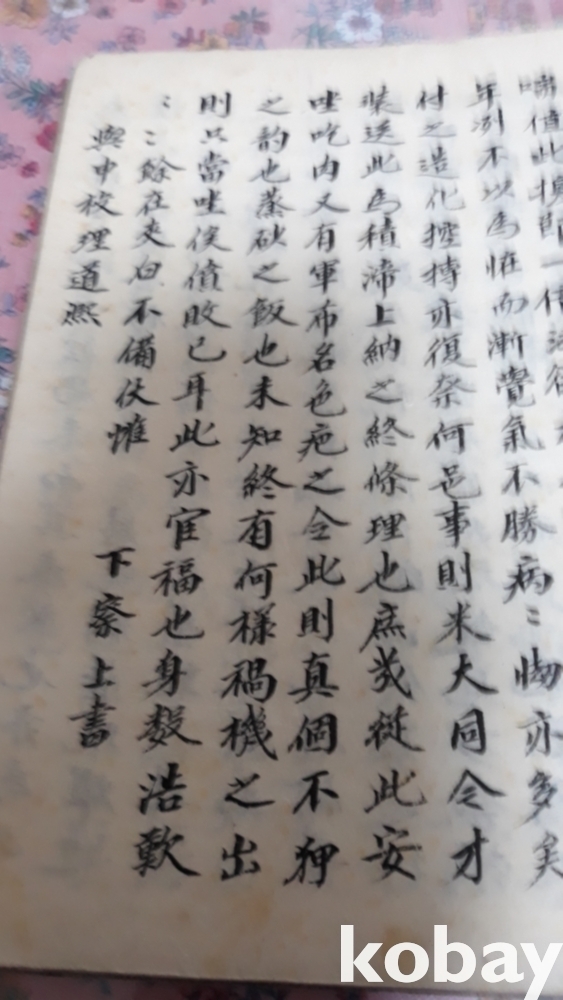 嘯值此換
年洌不以為怪而漸覺氣不勝病〻惱亦多矣
付之造化控摶亦復奈何邑事則米大同令才
裝送此為積滯上納之終條理也庶或從此安
坐吃肉又有軍布名色疤之令此則真個不狎
之韵也蒸砂之飯也未知終有何樣禍機之出
則只當坐俟債敗已耳此亦官福也身數浩歎
〻〻餘在夾白不備伏惟
下察上書
與申校理道熙
kobay